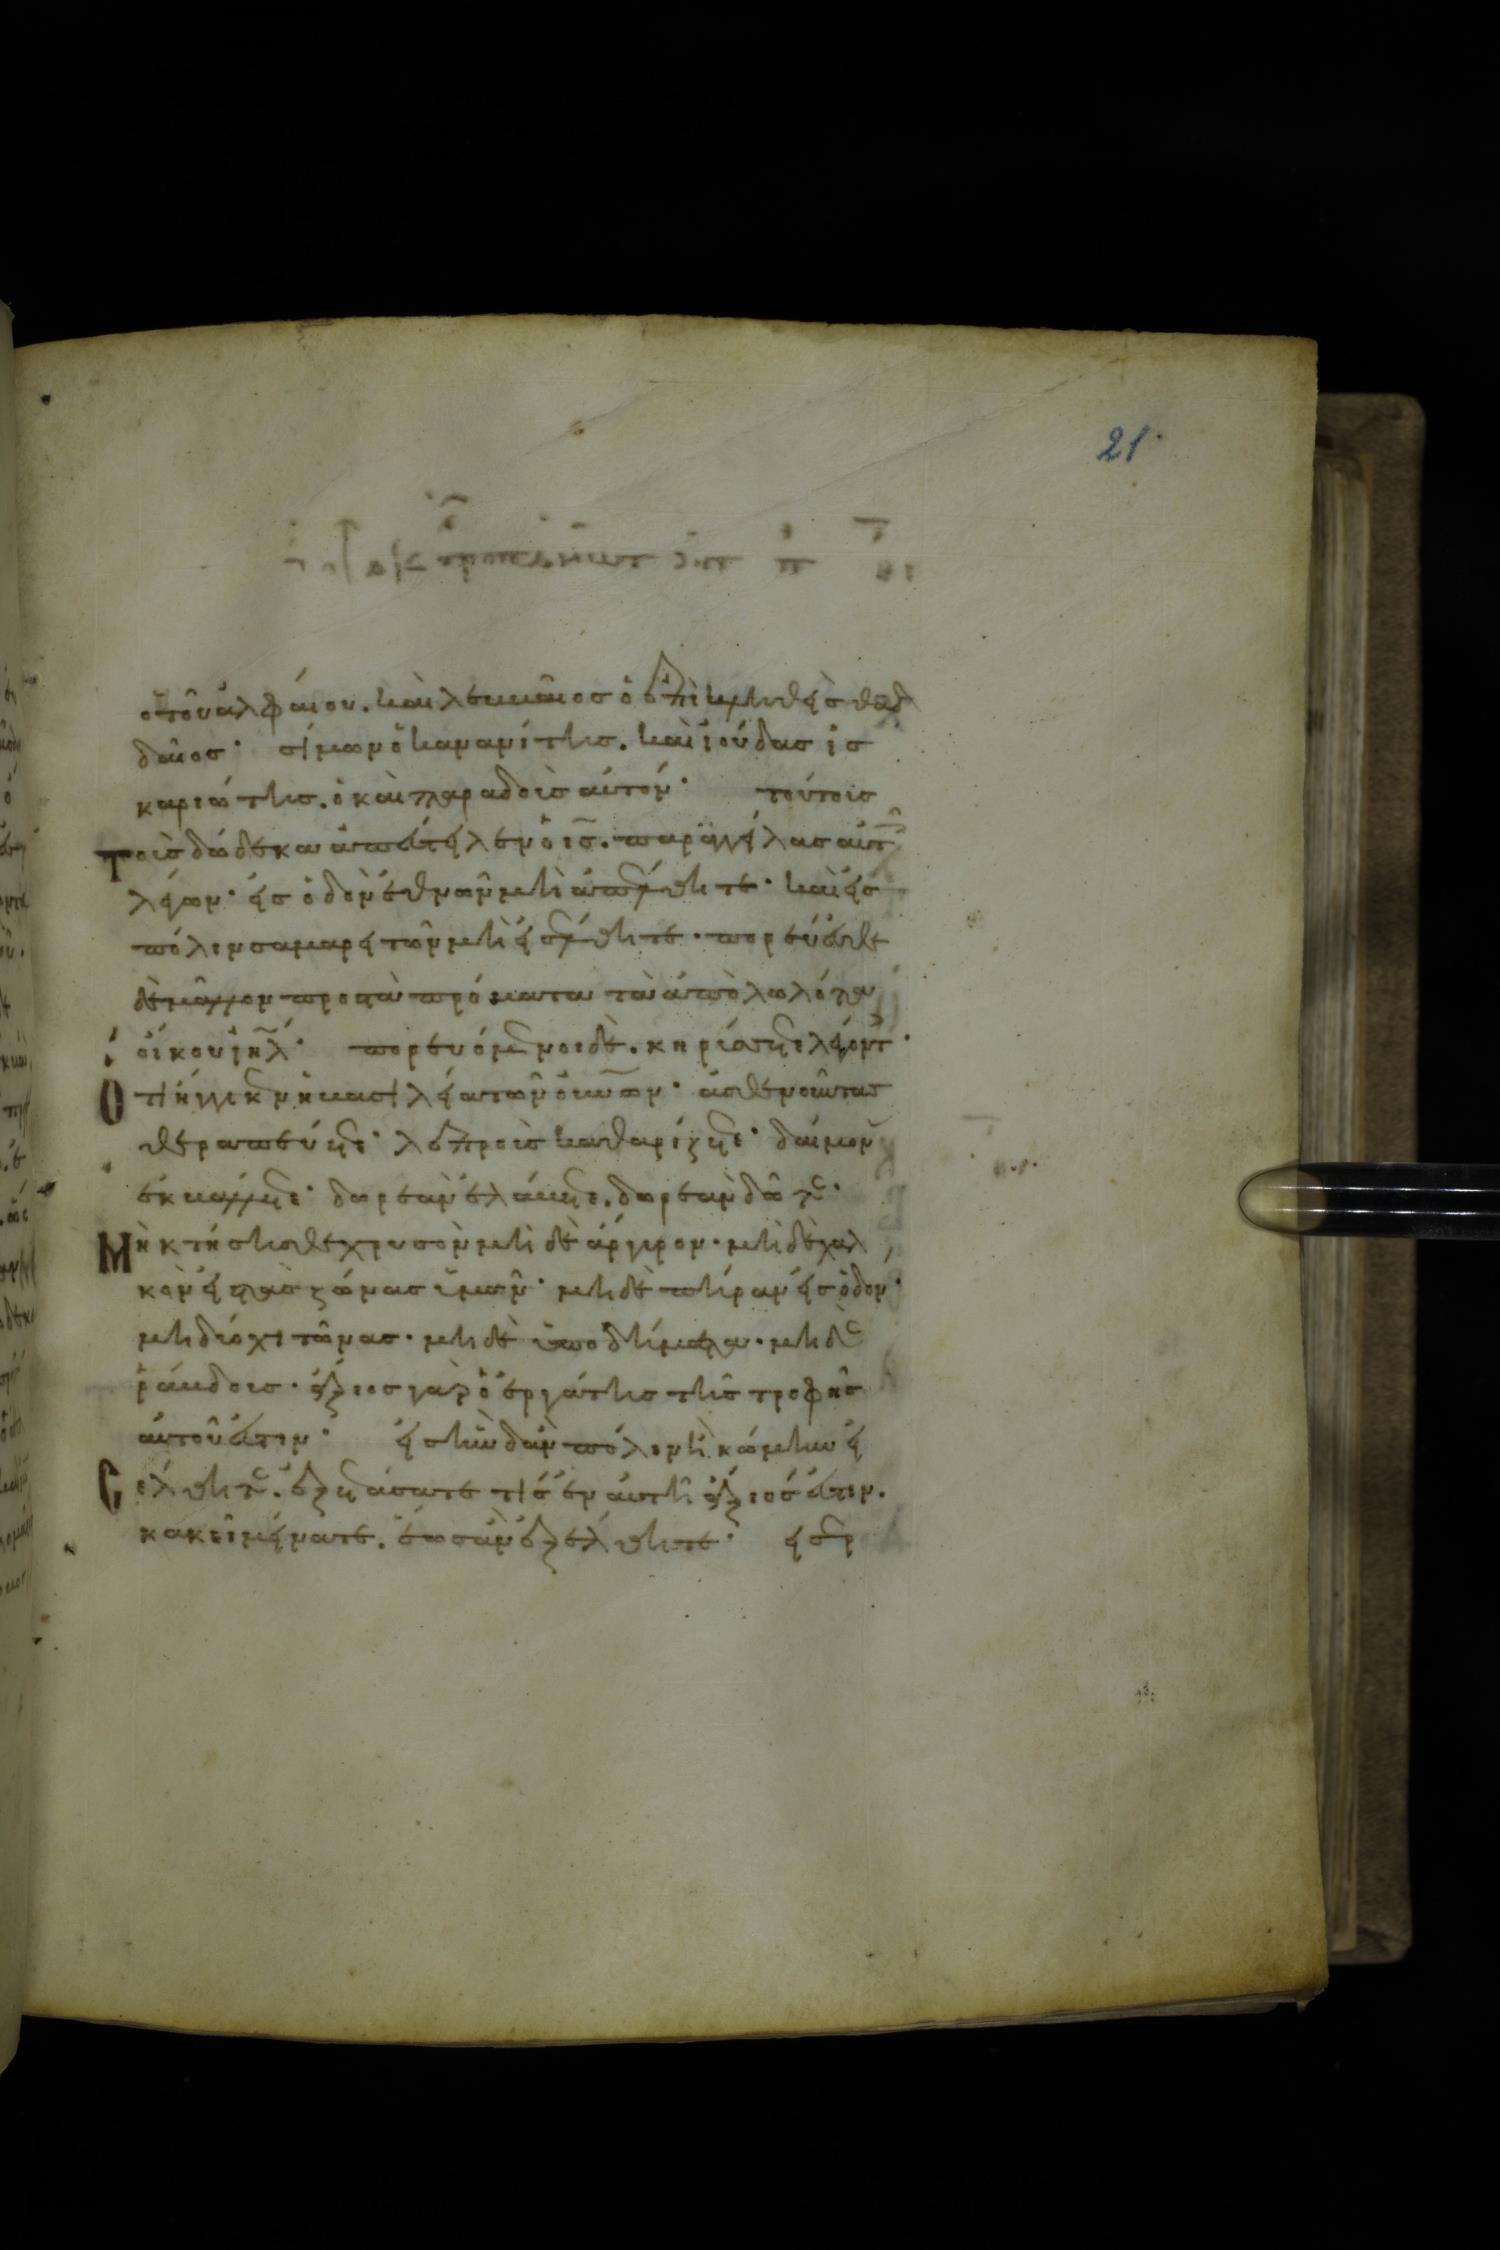 21
ὁ τοῦ ἀλφαίου. καὶ λευναῖος ὁ ἐπικληθεὶς θαδ
δαῖος· σίμων ὁ κανανίτης. καὶ ἰούδας ἰσ
καριώτης. ὁ καὶ παραδοὺς αὐτόν· τούτους
τοὺς δώδεκα ἀπέστειλεν ὁ ις. παραγγείλας αὐτ
λέγων· εἰς ὁδὸν ἐθνῶν μὴ ἀπέλθητε· καὶ εἰς
πόλιν σαμαρειτῶν μὴ εἰσέλθητε· πορεύεσθε
δὲ μᾶλλον πρὸς τὰ πρόβατα τὰ ἀπολωλότα
οἴκου ιηλ· πορευόμενοι δὲ. κηρύσσετε λέγοντ·
Ὅτι ἤγγικεν ἡ βασιλεία τῶν οὐνων· ἀσθενοῦντας
θεραπεύετε· λεπροὺς καθαρίζετε· δαιμόν
ἐκβάλλετε· δωρεὰν ἐλάβετε. δωρεὰν δότε·
Μὴ κτήσησθε χρυσὸν μὴ δὲ ἄργυρον· μὴ δὲ χαλ
κὸν εἰς τὰς ζώνας ὑμῶν· μὴ δὲ πήραν εἰς ὁδόν·
μὴ δύο χιτῶνας· μὴ δὲ ὑποδήματα· μὴ δὲ
ῥάβδους· ἄξιος γὰρ ὁ ἐργάτης τῆς τροφῆς
αὐτοῦ ἐστιν· εἰς ἣν δ' ἂν πόλιν ἢ κώμην εἰ
σέλθητε. ἐξετάσατε τίς ἐν αὐτῇ ἄξιός ἐστιν.
κἀκεῖ μείνατε. ἕως ἂν ἐξέλθητε· εἰσερ